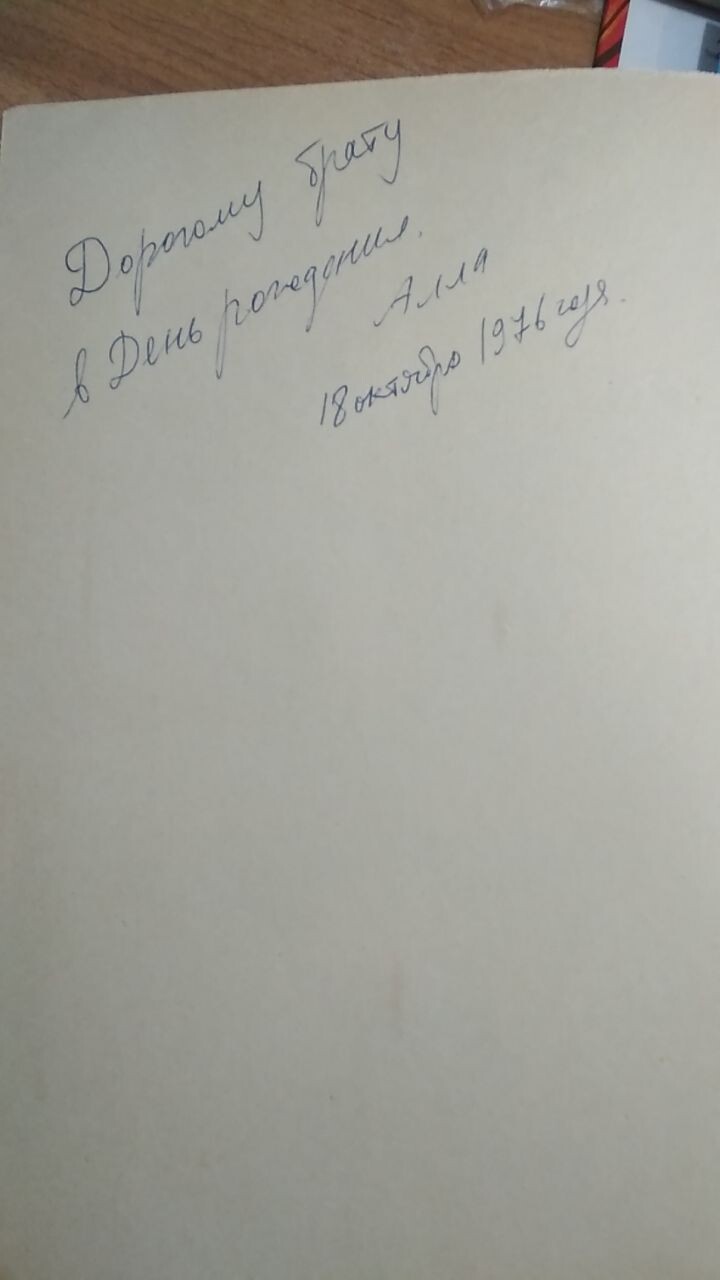 Дорогому брату
в День рождения.
Алла
18 октября 1976 года.